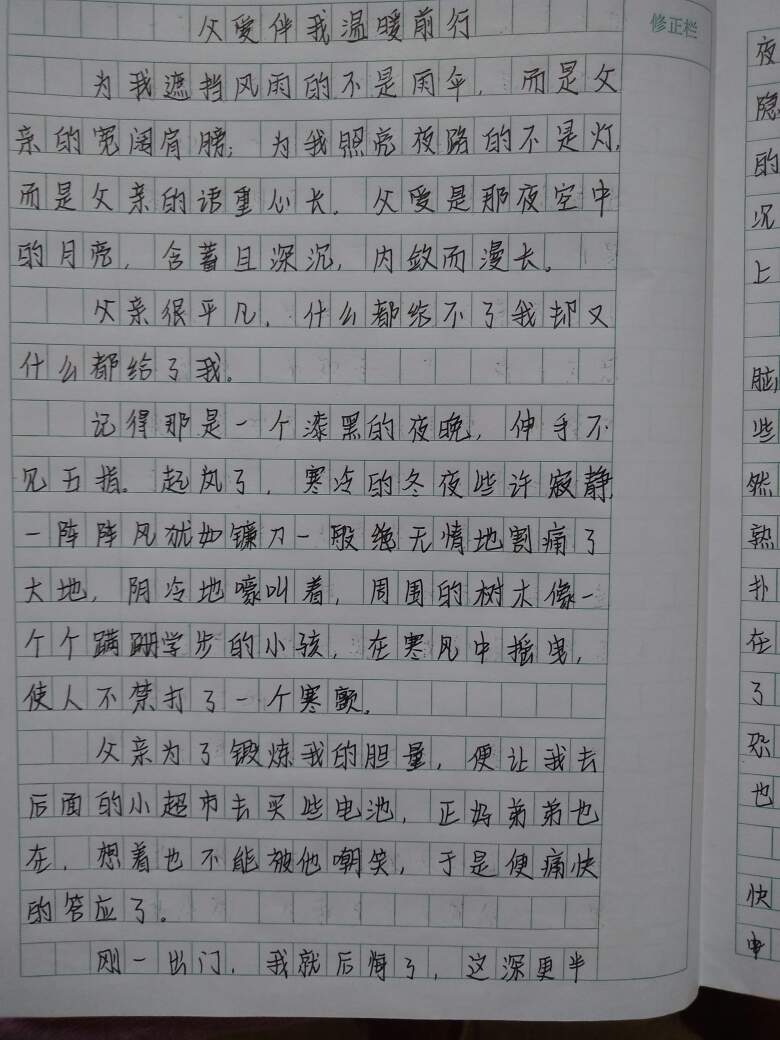 父爱伴我温暖前行
修正栏
为我遮挡风雨的不是雨伞，而是父
亲的宽阔肩膀；为我照亮夜路的不是灯，
而是父亲的语重心长。父爱是那夜空中
的月亮，含蓄且深沉，内敛而漫长。
父亲很平凡，什么都给不了我却又
什么都给了我。
记得那是一个漆黑的夜晚，伸手不
见五指。起风了，寒冷的冬夜些许寂静，
一阵阵风犹如镰刀一般绝无情地割痛了
大地，阴冷地嚎叫着，周围的树木像一
个个蹒跚学步的小孩，在寒风中摇曳，
使人不禁打了一个寒颤。
父亲为了锻炼我的胆量，便让我去
后面的小超市去买些电池，正妈弟弟也
在，想着也不能被他嘲笑，于是便痛快
的答应了。
刚一出门，我就后悔了，这深更半
夜
隐
的
沉
上
脑
些
然
熟
扑
在
了
恐
也
快